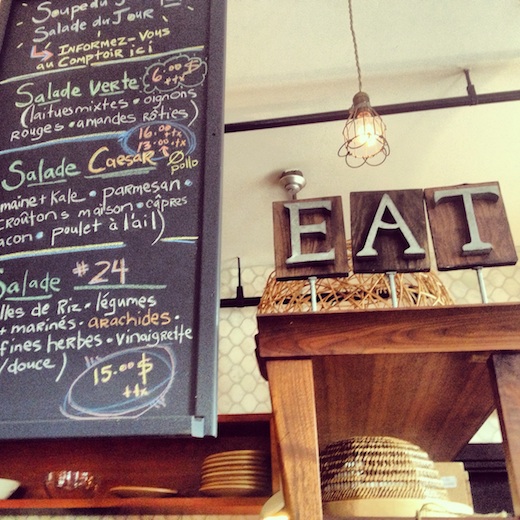 Soupe du Jour
Salade du Jour
Informez-vous
au comptoir ici
Salade Verte 6.00$ +tx
(laitues mixtes • oignons
rouges • amandes rôties)
16.00 +tx
13.00 +tx
Salade Caesar Ø pollo
maine + kale • parmesan •
croûtons maison • câpres
acon • poulet à l'ail)
Salade #24
lles de riz • légumes
+ marinés • arachides •
fines herbes • vinaigrette
douce)
15.00$
++x
EAT